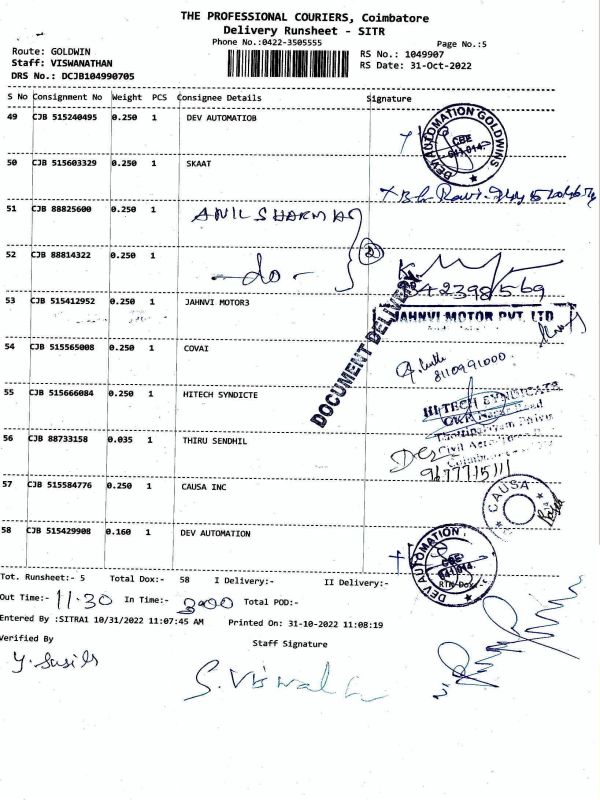 THE PROFESSIONAL COURIERS, Coimbatore
Delivery Runsheet - SITR
Phone No.:0422-3505555
Page No.:5
Route: GOLDWIN
RS No.: 1049907
Staff: VISWANATHAN
RS Date: 31-Oct-2022
DRS No.: DCJB104990705
S No Consignment No Weight PCS Consignee Details Signature
49 CJB 515240495 0.250 1 DEV AUTOMATIOB
DEV AUTOMATION GOLDWINS
CBE
641 014
50 CJB 515603329 0.250 1 SKAAT
51 CJB 88825600 0.250 1 ANIL SHARMA
2
52 CJB 88814322 0.250 1 - do -
42398569
DOCUMENT DELIVERY
53 CJB 515412952 0.250 1 JAHNVI MOTOR3
JAHNVI MOTOR PVT. LTD
54 CJB 515565008 0.250 1 COVAI
8110991000
55 CJB 515666084 0.250 1 HITECH SYNDICTE
HI TECH SYNDICATE
56 CJB 88733158 0.035 1 THIRU SENDHIL
57 CJB 515584776 0.250 1 CAUSA INC
CAUSA
58 CJB 515429908 0.160 1 DEV AUTOMATION
DEV AUTOMATION
CBE
641 014
Tot. Runsheet:- 5 Total Dox:- 58 I Delivery:- II Delivery:- RTN Dox:-
Out Time:- 11.30 In Time:- 3.00 Total POD:-
Entered By :SITRA1 10/31/2022 11:07:45 AM Printed On: 31-10-2022 11:08:19
Verified By
Staff Signature